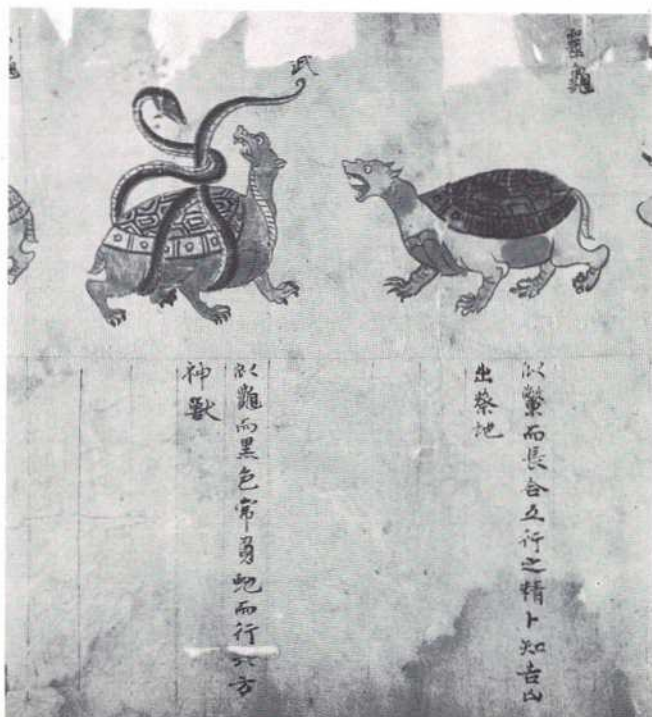 龜
似鱉而長合五行之精卜知吉凶
出蔡地
武
似龜而黑色常虵而行北方
神獸